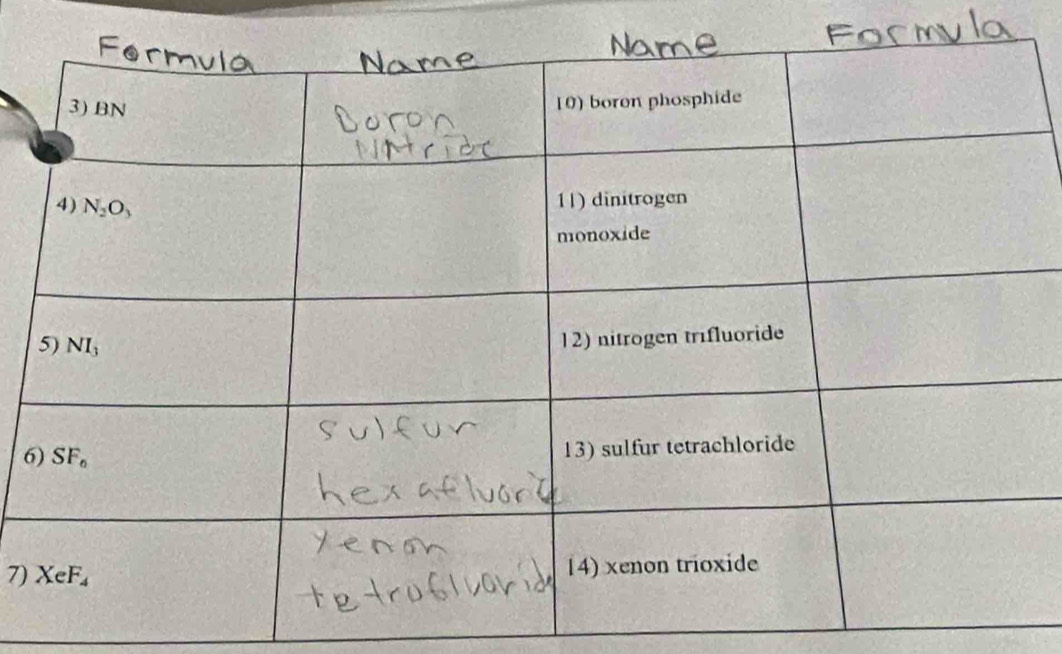 Formula Name Name Formula
3) BN Boron 10) boron phosphide
Nitride
4) N₂O₃ 11) dinitrogen
monoxide
5) NI₃ 12) nitrogen trifluoride
6) SF₆ sulfur 13) sulfur tetrachloride
hexafluoride
7) XeF₄ xenon 14) xenon trioxide
tetrafluoride